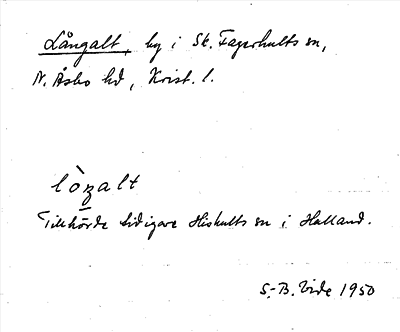 Långalt, by i Sk. Fagerhults sn,
N. Åsbo hd, Krist. l.
lòŋalt
Tillhörde tidigare Hishults sn i Halland.
S.-B. Vide 1950